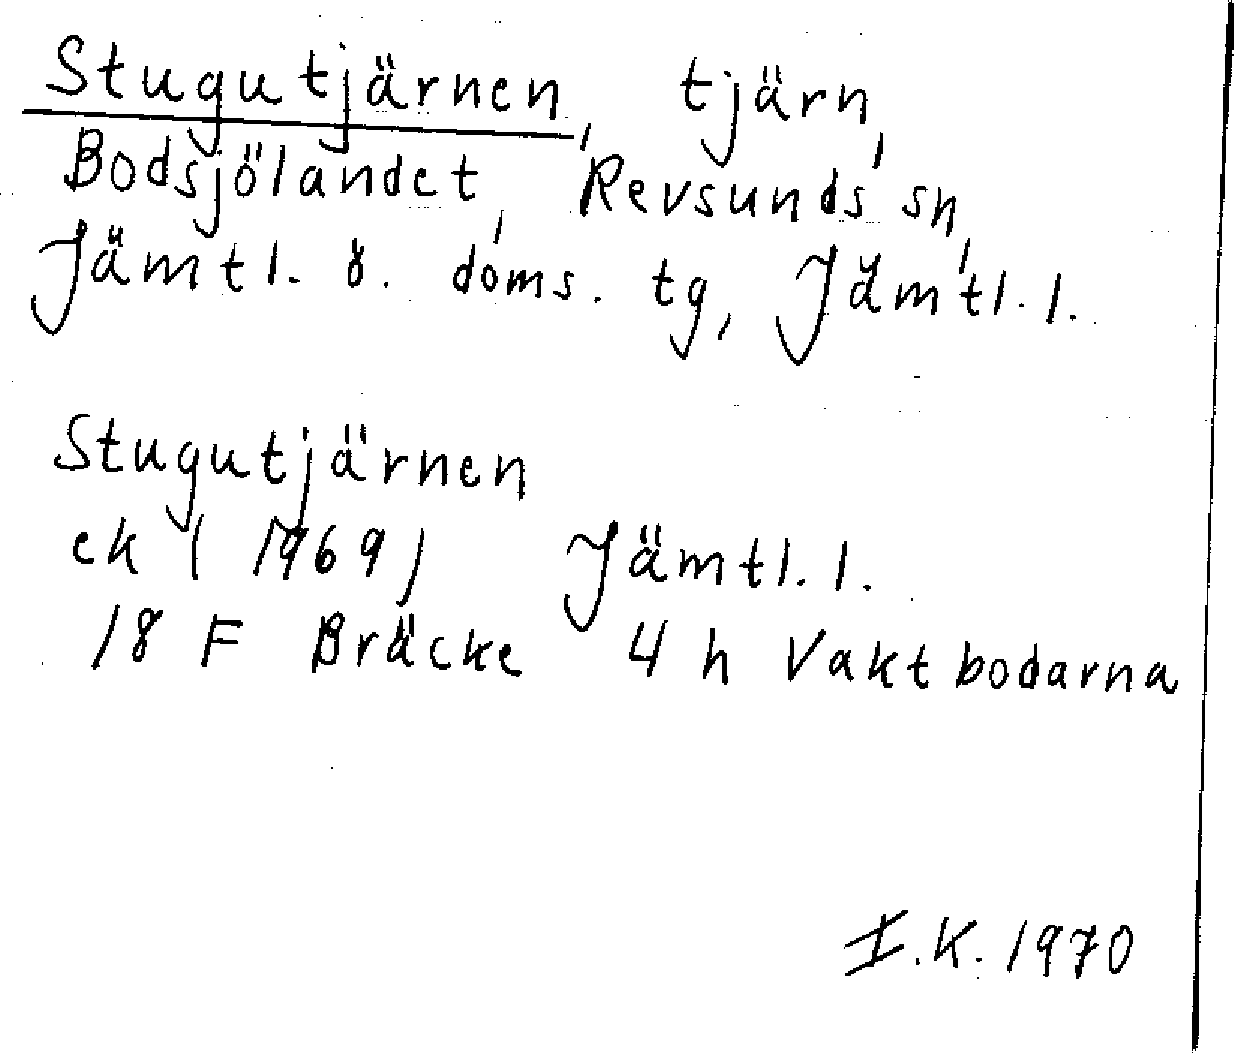 Stugutjärnen, tjärn,
Bodsjölandet, Revsunds sn,
Jämtl. ö. doms. tg, Jämtl. l.
Stugutjärnen
ek (1969) Jämtl. l.
18 F Bräcke 4 h Vaktbodarna
I.K. 1970